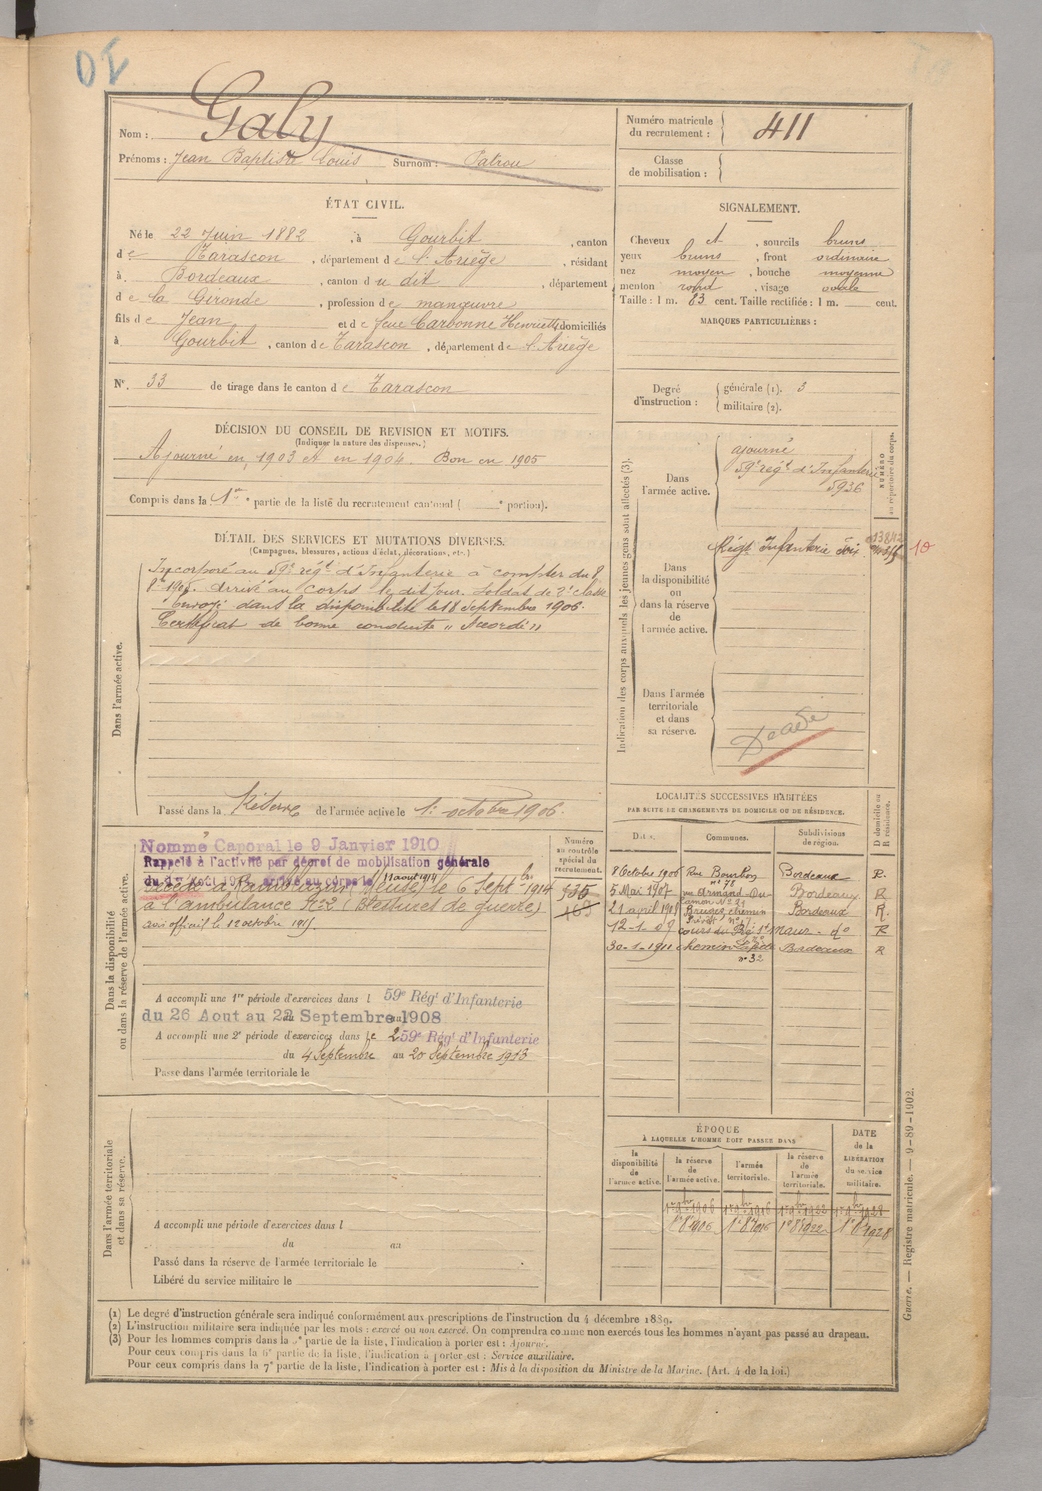 Nom : Galy
Prénoms : Jean Baptiste Louis Surnom : Patrou
ÉTAT CIVIL.
Né le 22 Juin 1882, à Gourbit, canton
de Tarascon, département de l'Ariège, résidant
à Bordeaux, canton du dit, département
de la Gironde, profession de manœuvre
fils de Jean et de feue Carbonne Henriette, domiciliés
à Gourbit, canton de Tarascon, département de l'Ariège
N°. 33 de tirage dans le canton de Tarascon
DÉCISION DU CONSEIL DE REVISION ET MOTIFS.
(Indiquer la nature des dispenses.)
Ajourné en 1903 et en 1904. Bon en 1905
Compris dans la 1re partie de la liste du recrutement cantonal ( portion).
DÉTAIL DES SERVICES ET MUTATIONS DIVERSES.
(Campagnes, blessures, actions d'éclat, décorations, etc.)
Dans l'armée active.
Incorporé au 59e régt d'Infanterie à compter du 8
8bre 1905. Arrivé au corps le dit jour. Soldat de 2e classe
Envoyé dans la disponibilité le 18 septembre 1906.
Certificat de bonne conduite "Accordé"
Passé dans la Réserve de l'armée active le 1er octobre 1906.
Dans la disponibilité
ou dans la réserve de l'armée active.
Numéro
au contrôle
spécial du
recrutement.
Nommé Caporal le 9 Janvier 1910
Rappelé à l'activité par décret de mobilisation générale
du 1er Août 1914, arrivé au corps le 11 août 1914
Décédé à (Meuse) le 6 Sept bre 1914
à l'ambulance (Blessures de guerre)
avis officiel le 12 octobre
A accompli une 1re période d'exercices dans l 59e Régt d'Infanterie
du 26 Aout au 22 Septembre 1908
A accompli une 2e période d'exercices dans le 259e Régt d'Infanterie
du 4 Septembre au 20 Septembre 1913
Passé dans l'armée territoriale le
Dans l'armée territoriale
et dans sa réserve.
A accompli une période d'exercices dans l
du au
Passé dans la réserve de l'armée territoriale le
Libéré du service militaire le
Numéro matricule
du recrutement : 411
Classe
de mobilisation :
SIGNALEMENT.
Cheveux et, sourcils bruns
yeux bruns, front ordinaire
nez moyen, bouche moyenne
menton rond, visage ovale
Taille : 1 m. 83 cent. Taille rectifiée : 1 m. cent.
MARQUES PARTICULIÈRES :
Degré
d'instruction :
générale (1). 3
militaire (2).
Indication des corps auxquels les jeunes gens sont affectés (3).
NUMÉRO
au répertoire du corps.
Dans
l'armée active.
ajourné
59e régt d'Infanterie
5936
Dans
la disponibilité
ou
dans la réserve
de
l'armée active.
Régt Infanterie Foix
10
Dans l'armée
territoriale
et dans
sa réserve.
LOCALITÉS SUCCESSIVES HABITÉES
PAR SUITE DE CHANGEMENTS DE DOMICILE OU DE RÉSIDENCE.
D domicile ou
R résidence.
Dates. Communes. Subdivisions
de région.
8 Octobre 1906 Rue Bourbon n° 78 Bordeaux R.
5 Mai 1907 rue Armand-Du- Bordeaux R
21 avril 190 Bruges chemin Bordeaux R.
12-1-09 cours du Pré St Maur - do R
30-1-1911 chemin n° 32 Bordeaux R
ÉPOQUE
À LAQUELLE L'HOMME DOIT PASSER DANS
DATE
de la
LIBÉRATION
du service
militaire.
la
disponibilité
de
l'armée active.
la réserve
de
l'armée active.
l'armée
territoriale.
la réserve
de
l'armée
territoriale.
1er 9bre 1906 1er 9bre 1916 1er 9bre 1922 1er 9bre 1928
1er 8 1906 1er 8 1916 1er 8 1922 1er 8 1928
(1) Le degré d'instruction générale sera indiqué conformément aux prescriptions de l'instruction du 4 décembre 1889.
(2) L'instruction militaire sera indiquée par les mots : exercé ou non exercé. On comprendra comme non exercés tous les hommes n'ayant pas passé au drapeau.
(3) Pour les hommes compris dans la partie de la liste, l'indication à porter est : Ajourné.
Pour ceux compris dans la 6e partie de la liste, l'indication à porter est : Service auxiliaire.
Pour ceux compris dans la 7e partie de la liste, l'indication à porter est : Mis à la disposition du Ministre de la Marine. (Art. 4 de la loi.)
Guerre. — Registre matricule. — 9-89-1902.